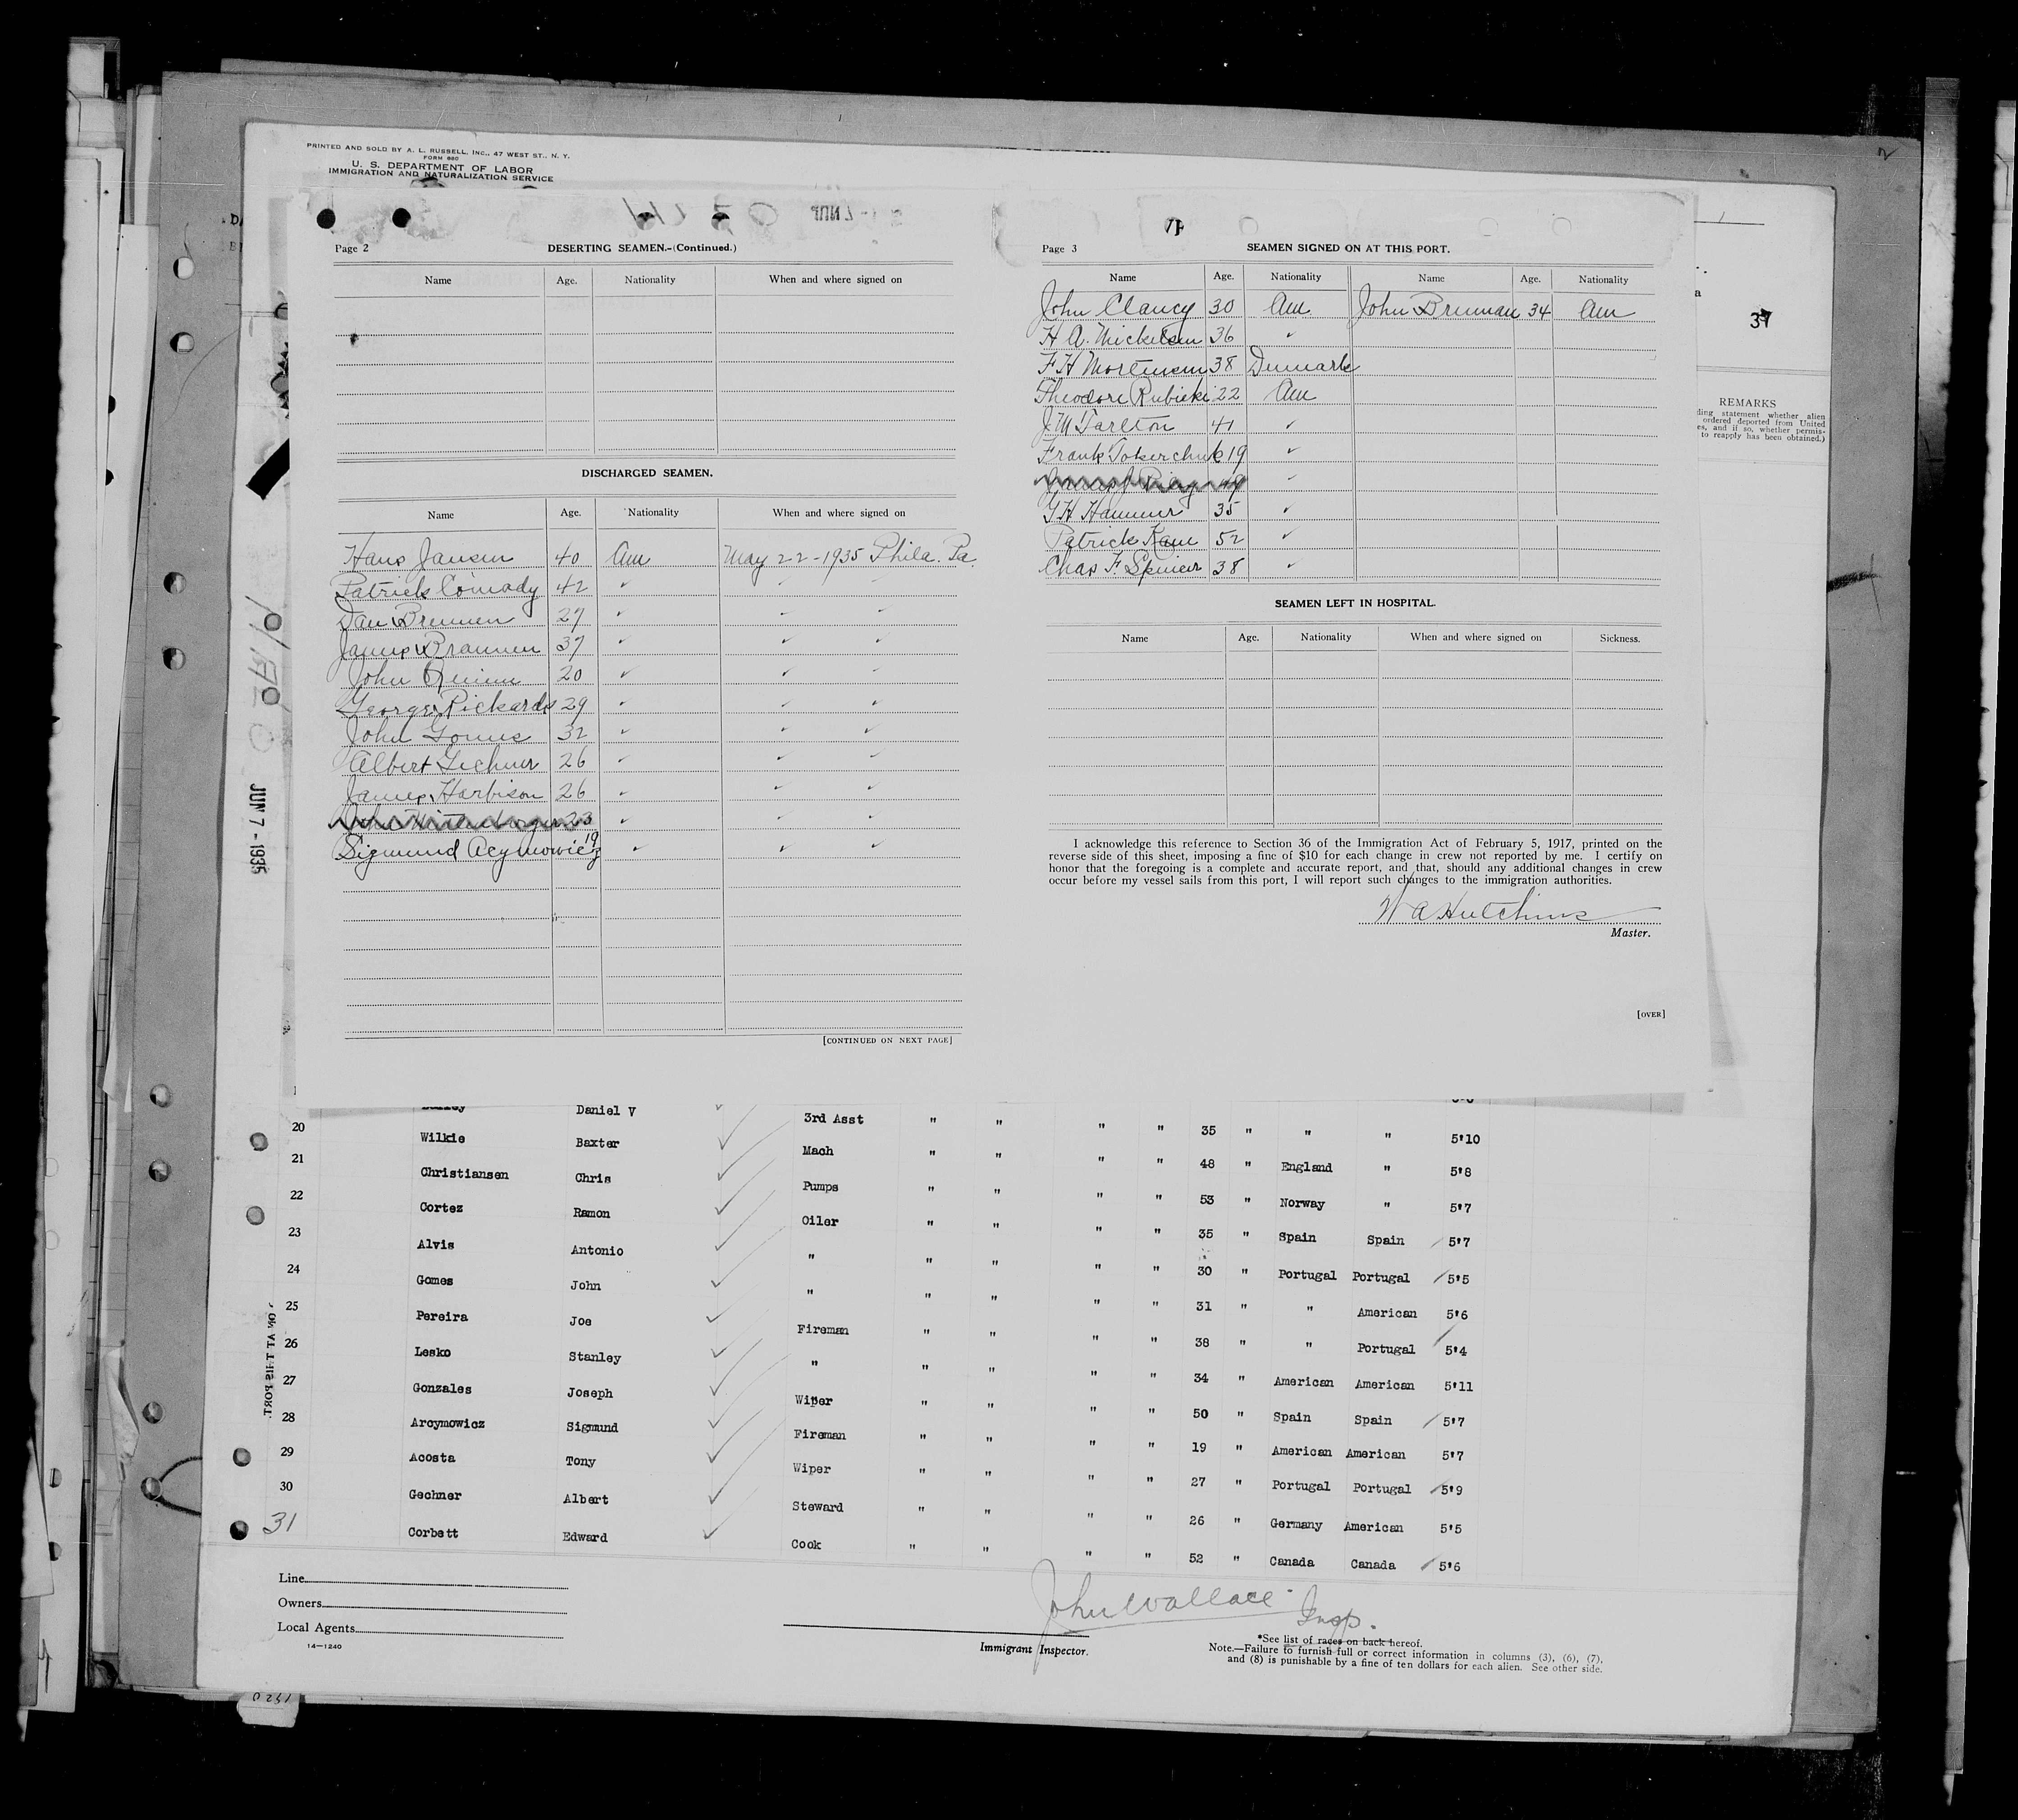 PRINTED AND SOLD BY A. L. RUSSELL, INC., 47 WEST ST., N. Y.
FORM 680
U. S. DEPARTMENT OF LABOR
IMMIGRATION AND NATURALIZATION SERVICE
JUN 7 - 1935
37
REMARKS
ding statement whether alien
ordered deported from United
es, and if so, whether permis-
to reapply has been obtained.)
Page 2 DESERTING SEAMEN.-(Continued.)
Name Age. Nationality When and where signed on
DISCHARGED SEAMEN.
Name Age. Nationality When and where signed on
Hans Jansen 40 Am May 22-1935 Phila. Pa.
Patrick 42 ✓ ✓ ✓
Dan Brennen 27 ✓ ✓ ✓
James Brannen 37 ✓ ✓ ✓
John 20 ✓ ✓ ✓
George Rickards 29 ✓ ✓ ✓
John Gomes 32 ✓ ✓ ✓
Albert Gechner 26 ✓ ✓ ✓
James Harbison 26 ✓ ✓ ✓
23 ✓ ✓ ✓
Sigmund Acymowicz 19 ✓ ✓ ✓
[CONTINUED ON NEXT PAGE]
Page 3 SEAMEN SIGNED ON AT THIS PORT.
Name Age. Nationality Name Age. Nationality
John Clancy 30 Am John Brennan 34 Am
H A. Mickelsen 36 ✓
F H Mortensen 38 Denmark
Theodore Rubicki 22 Am
J. M Tarlton 41 ✓
Frank Tokerchuk 19 ✓
49 ✓
G H Hammer 35 ✓
Patrick Kane 52 ✓
Chas F. Spicer 38 ✓
SEAMEN LEFT IN HOSPITAL.
Name Age. Nationality When and where signed on Sickness.
I acknowledge this reference to Section 36 of the Immigration Act of February 5, 1917, printed on the
reverse side of this sheet, imposing a fine of $10 for each change in crew not reported by me. I certify on
honor that the foregoing is a complete and accurate report, and that, should any additional changes in crew
occur before my vessel sails from this port, I will report such changes to the immigration authorities.
W A Hutchins
Master.
[OVER]
Daniel V ✓ 3rd Asst " " " " 35 " " " 5'10
20 Wilkie Baxter ✓ Mach " " " " 48 " England " 5'8
21 Christiansen Chris ✓ Pumps " " " " 53 " Norway " 5'7
22 Cortez Ramon ✓ Oiler " " " " 35 " Spain Spain 5'7
23 Alvis Antonio ✓ " " " " " 30 " Portugal Portugal 5'5
24 Gomes John ✓ " " " " " 31 " " American 5'6
25 Pereira Joe ✓ Fireman " " " " 38 " " Portugal 5'4
26 Lesko Stanley ✓ " " " " " 34 " American American 5'11
27 Gonzales Joseph ✓ Wiper " " " " 50 " Spain Spain 5'7
28 Arcymowicz Sigmund ✓ Fireman " " " " 19 " American American 5'7
29 Acosta Tony ✓ Wiper " " " " 27 " Portugal Portugal 5'9
30 Gechner Albert ✓ Steward " " " " 26 " Germany American 5'5
31 Corbett Edward ✓ Cook " " " " 52 " Canada Canada 5'6
Line
Owners
Local Agents
14—1240
John Wallace Insp.
Immigrant Inspector.
*See list of races on back hereof.
Note.—Failure to furnish full or correct information in columns (3), (6), (7),
and (8) is punishable by a fine of ten dollars for each alien. See other side.